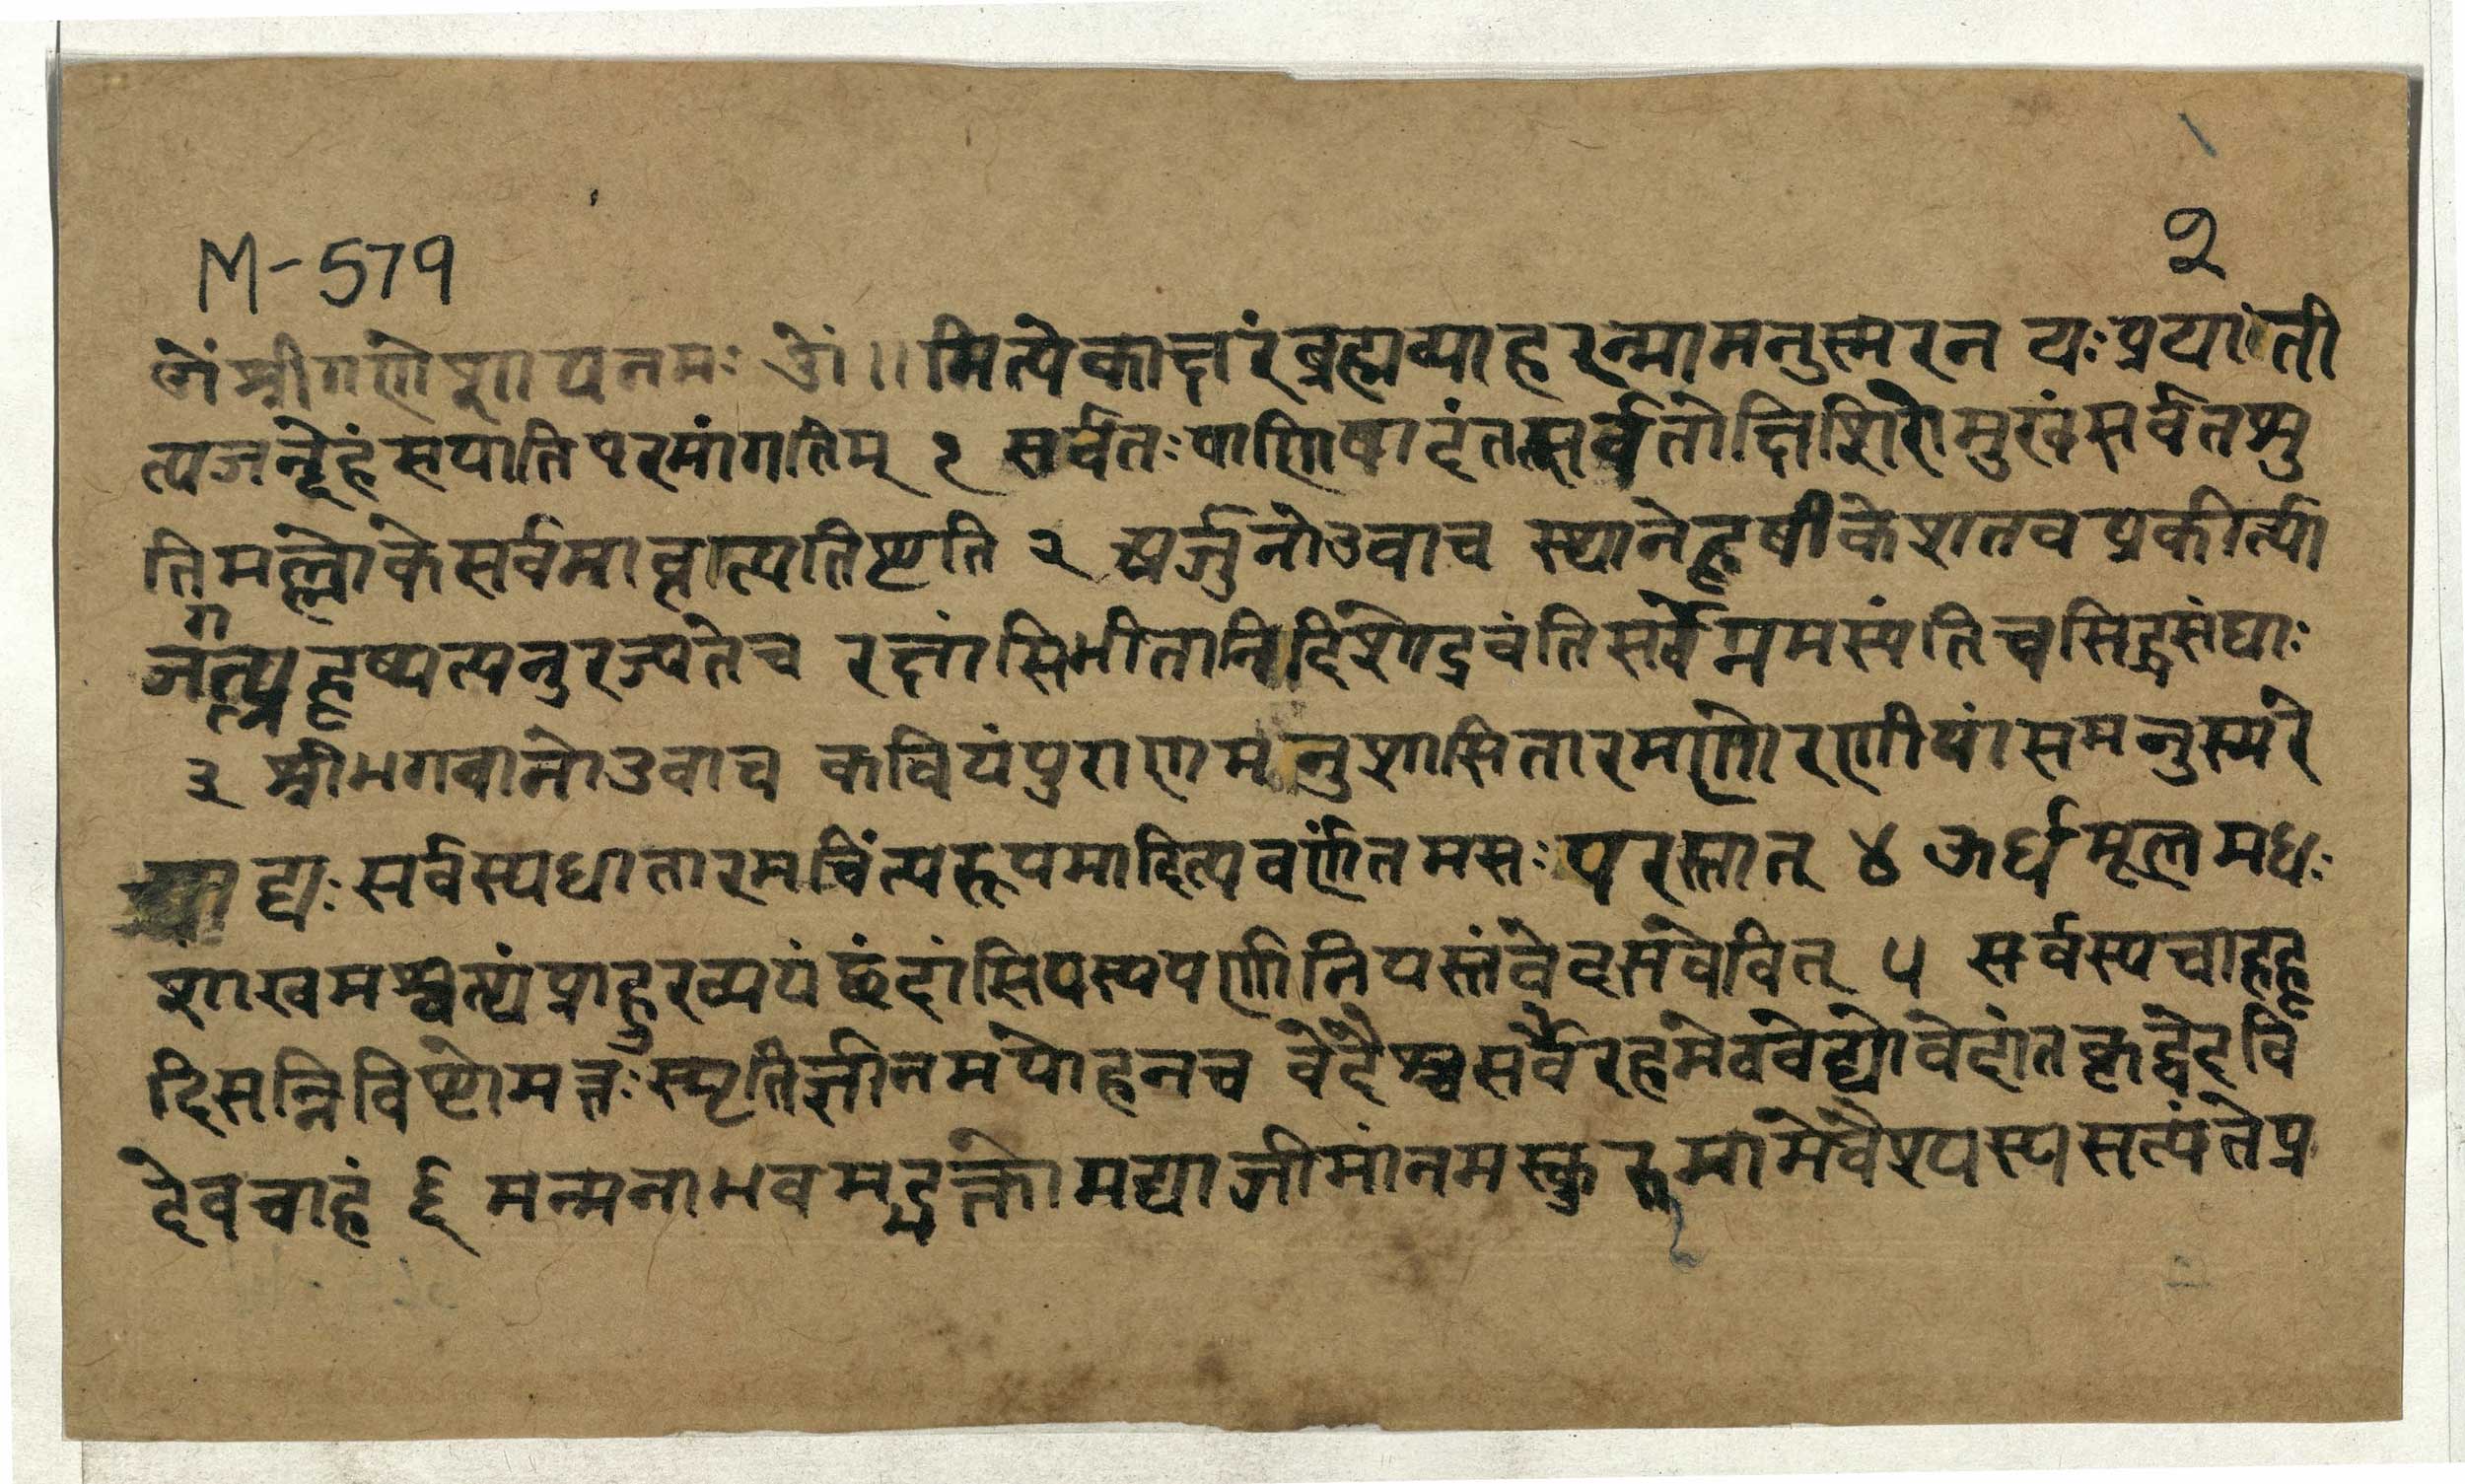 M-579
२
ओं श्रीगणेशाय नमः ओं ।। मित्येकाक्षरं ब्रह्म व्याहरन्मामनुस्मरन यः प्रयाती
त्यजन्देहं स याति परमां गतिम् १ सर्वतः पाणिपादं तत्सर्वतोक्षिशिरोमुखं सर्वतश्रु
तिमल्लोके सर्वमावृत्य तिष्टति २ अर्जुनोउवाच स्थाने हृषीकेश तव प्रकीर्त्या
जगत्प्रहृष्यत्यनुरज्यते च रक्षांसि भीतानि दिशो द्रवंति सर्वे नमस्यंति च सिद्धसंघाः
३ श्रीभगवानोउवाच कवियं पुराणमनुशासितारमणोरणीयां समनुस्मरे
द्यः सर्वस्य धातारमचिंत्यरूपमादित्यवर्णं तमसः परस्तात् ४ ऊर्धमूलमधः
शाखमश्वत्थं प्राहुरव्ययं छंदांसि यस्य पर्णानि यस्तं वेद स वेदवित् ५ सर्वस्य चाहहृ
दि सन्निविष्टो मत्तः स्मृतिर्ज्ञानमपोहनच वेदैश्च सर्वैरहमेव वेद्यो वेदांतकृद्वेदवि
देव चाहं ६ मन्मना भव मद्भक्तो मद्याजी मां नमस्कुरु मामेवैश्यस्य सत्यं ते प्र